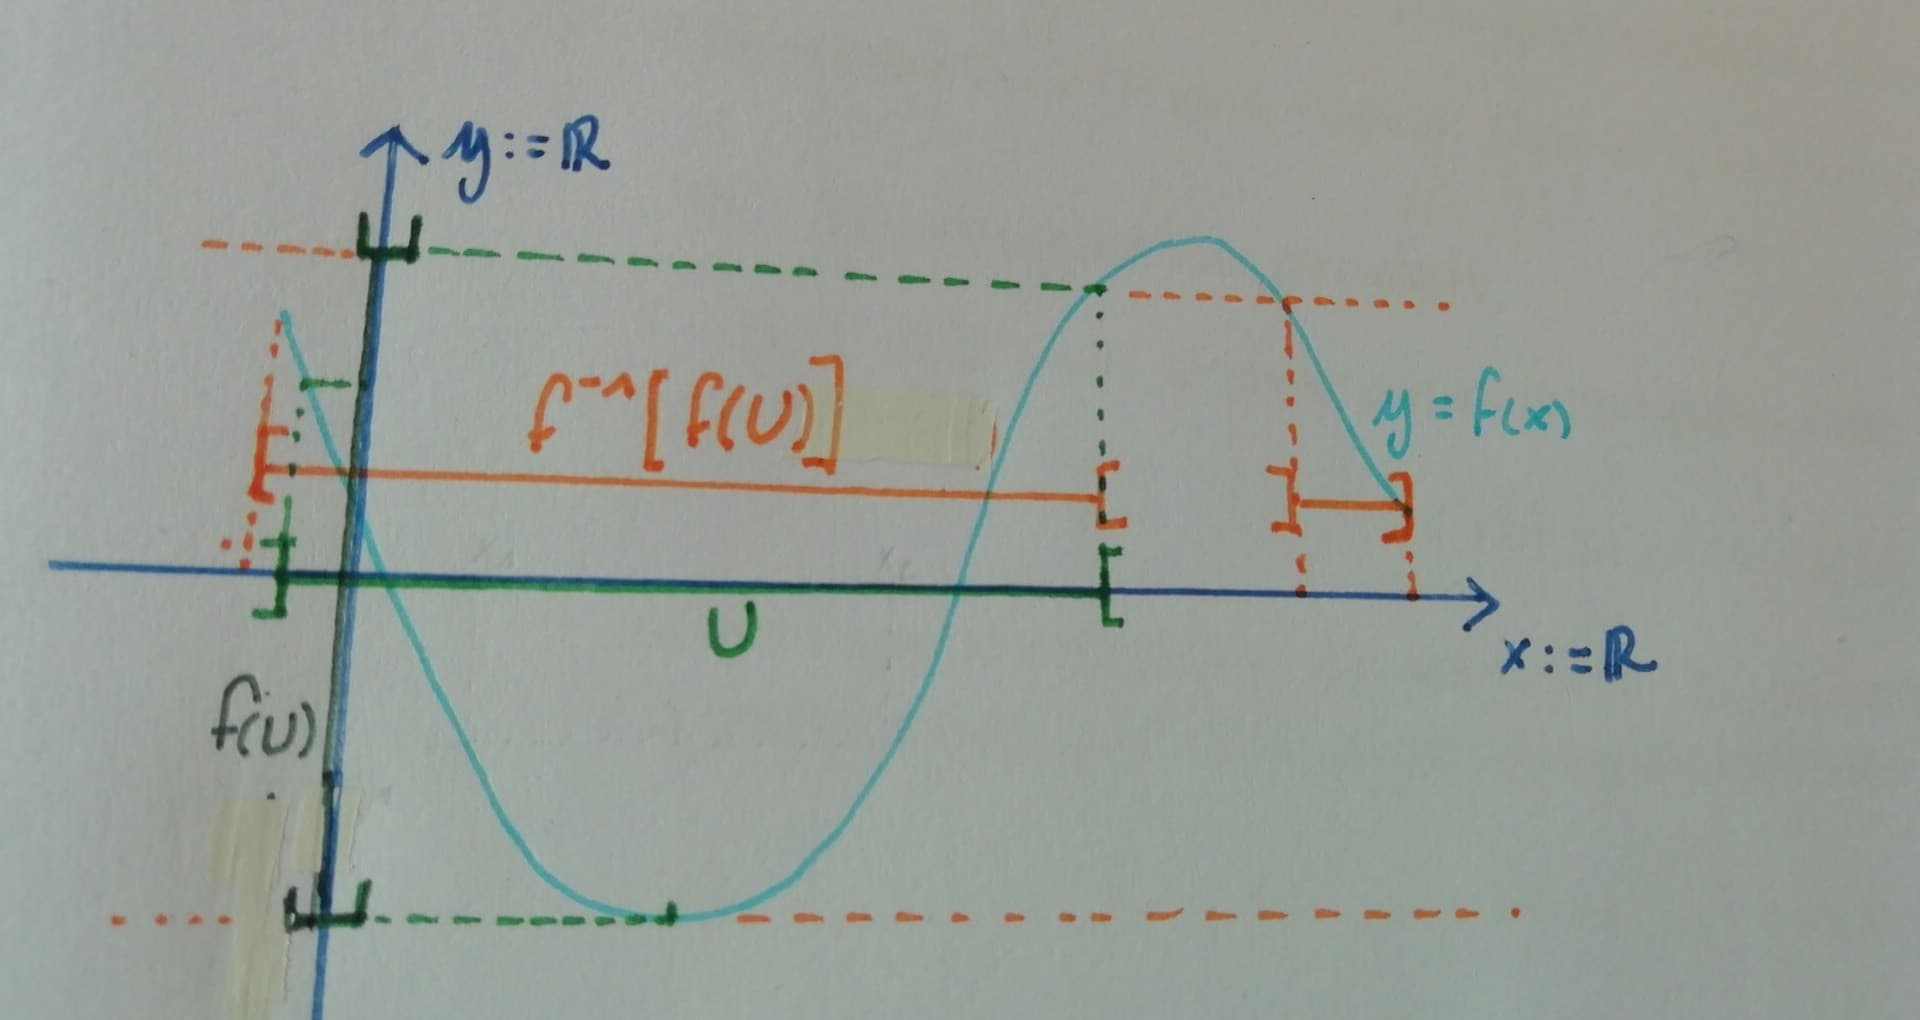 y:=ℝ
f⁻¹[f(U)]
y=f(x)
U
x:=ℝ
f(U)